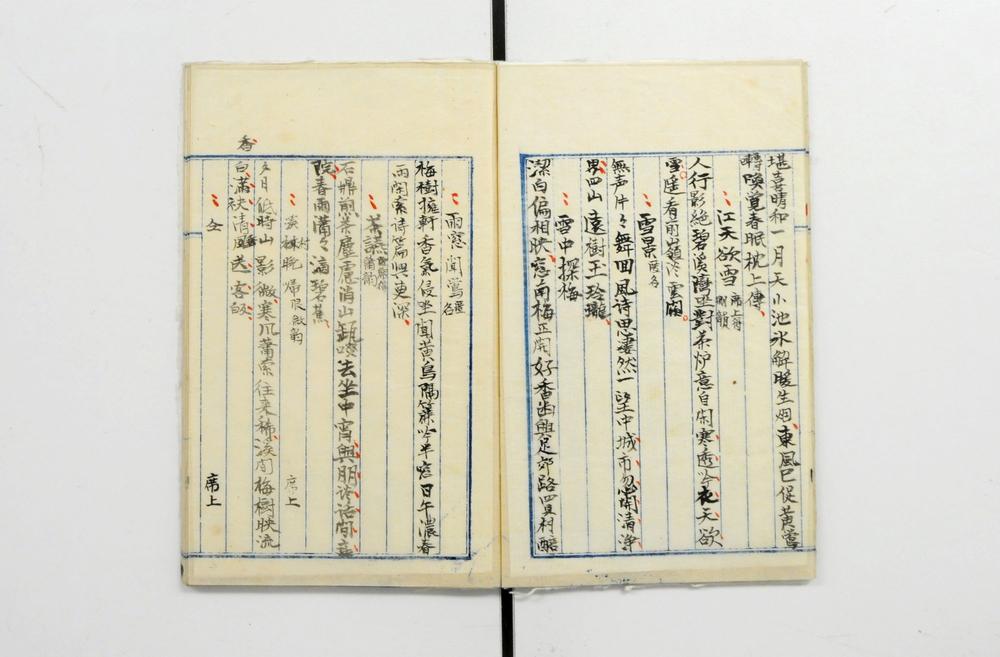 堪喜晴和一月天小池氷解暖生烟東風已促黄鶯
囀喚覚春眠枕上傳
江天欲雪 席上分
人行影絶碧溪灣坐對茶炉意自閑寒透吟衣天欲
雪遥看前嶺冷雲関
雪景
無声片々舞回風诗思凄然一望中城市忽開清浄
界四山遠樹玉玲瓏
雪中探梅
潔白偏相映窓南梅正開好香 足郊路 村醅
雨窓聞鶯
梅樹擁軒香氣侵坐聞黄鳥隔簾吟半窓日午濃春
雨閑索诗篇興更深
茶讌
石鼎煎茶塵慮消山 去坐中宵興朋 话间
院春雨瀟々滴碧蕉
梅村晩帰 限微韵 席上
夕月低時山影微寒爪蕭索往来稀渓间梅樹映流
香
白满袂清風送客皈
仝 席上